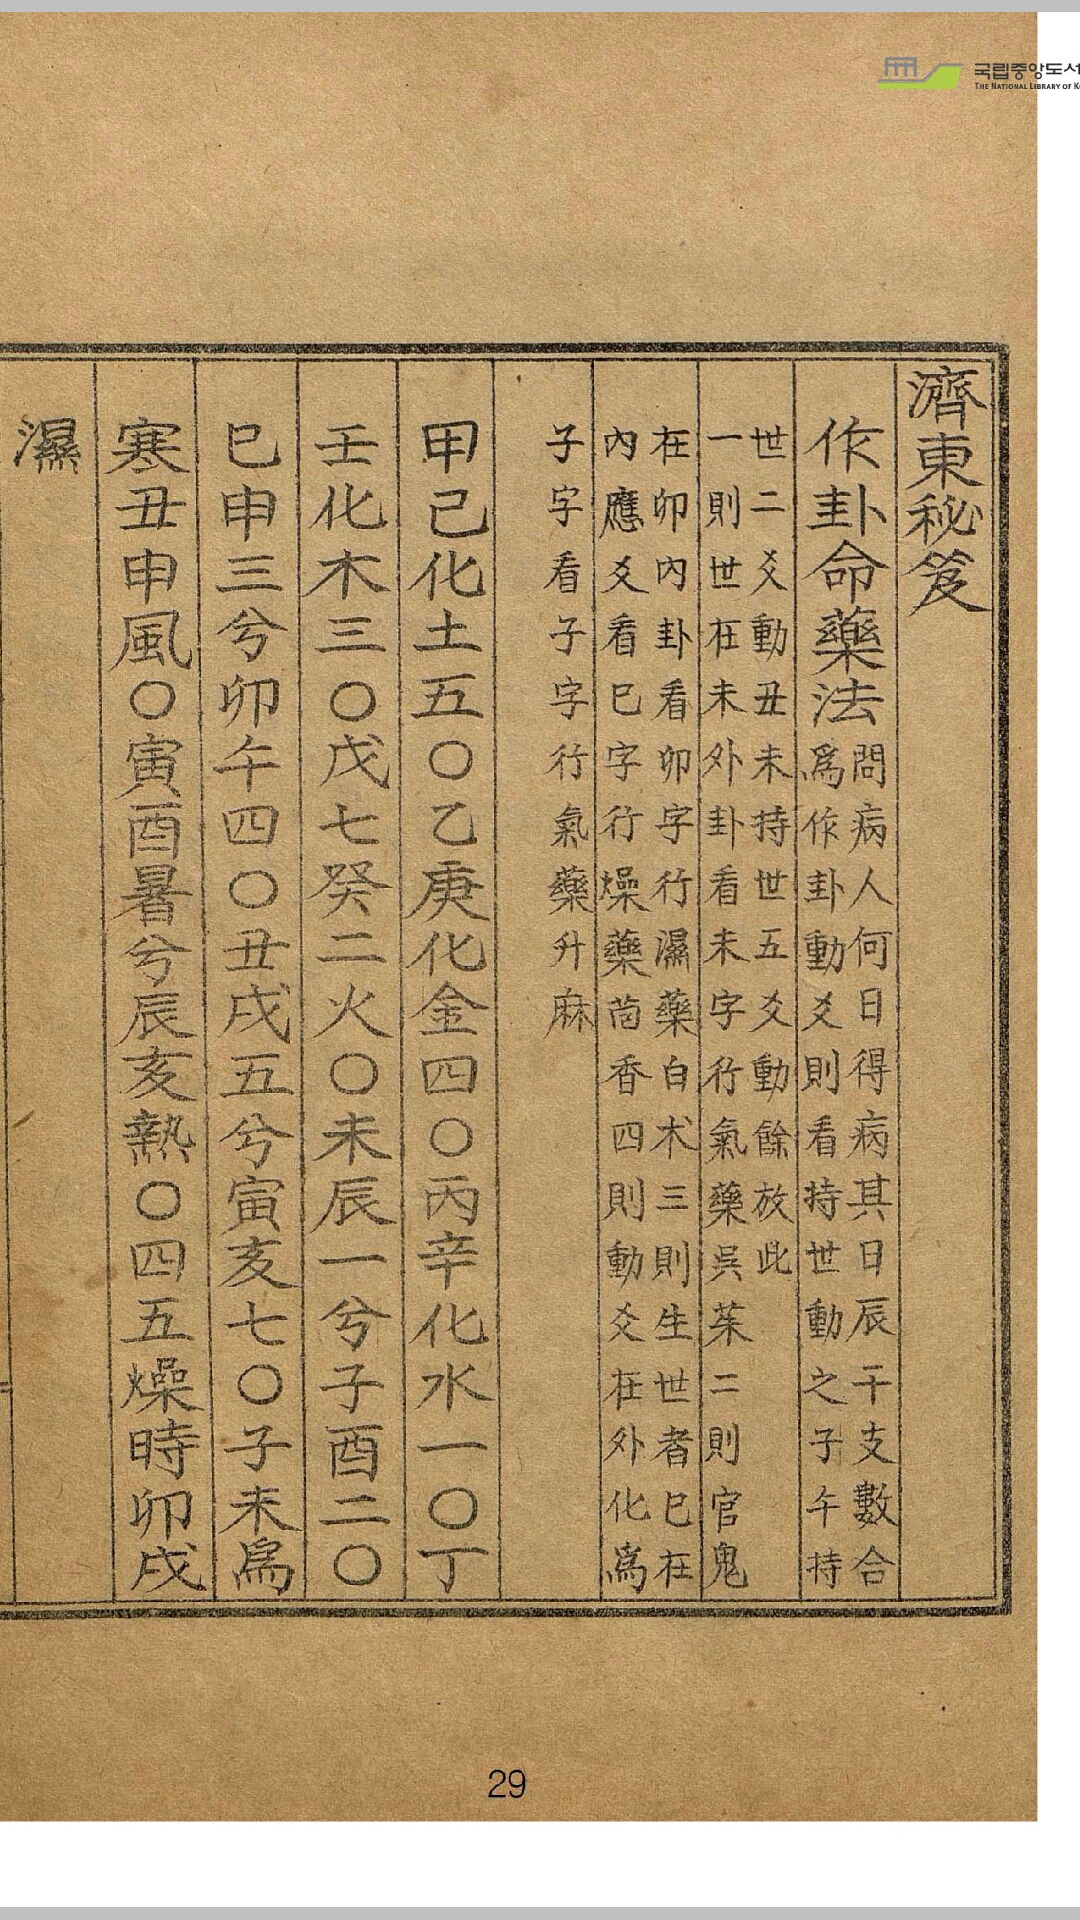 국립중앙도서
THE NATIONAL LIBRARY OF K
濟東秘笈
作卦命藥法
問病人何日得病其日辰干支數合
爲作卦動爻則看持世動之子午持
世二爻動丑未持世五爻動餘放此
一則世在未外卦看未字行氣藥吳茱二則官鬼
在卯內卦看卯字行行濕藥白术三則生世者巳在
內應爻看巳字行燥藥茴香四則動爻在外化爲
子字看子字行氣藥升麻
甲己化土五〇乙庚化金四〇丙辛化水一〇丁
壬化木三〇戊七癸二火〇未辰一兮子酉二〇
巳申三兮卯午四〇丑戌五兮寅亥七〇子未爲
寒丑申風〇寅酉暑兮辰亥熱〇四五燥時卯戌
濕
29